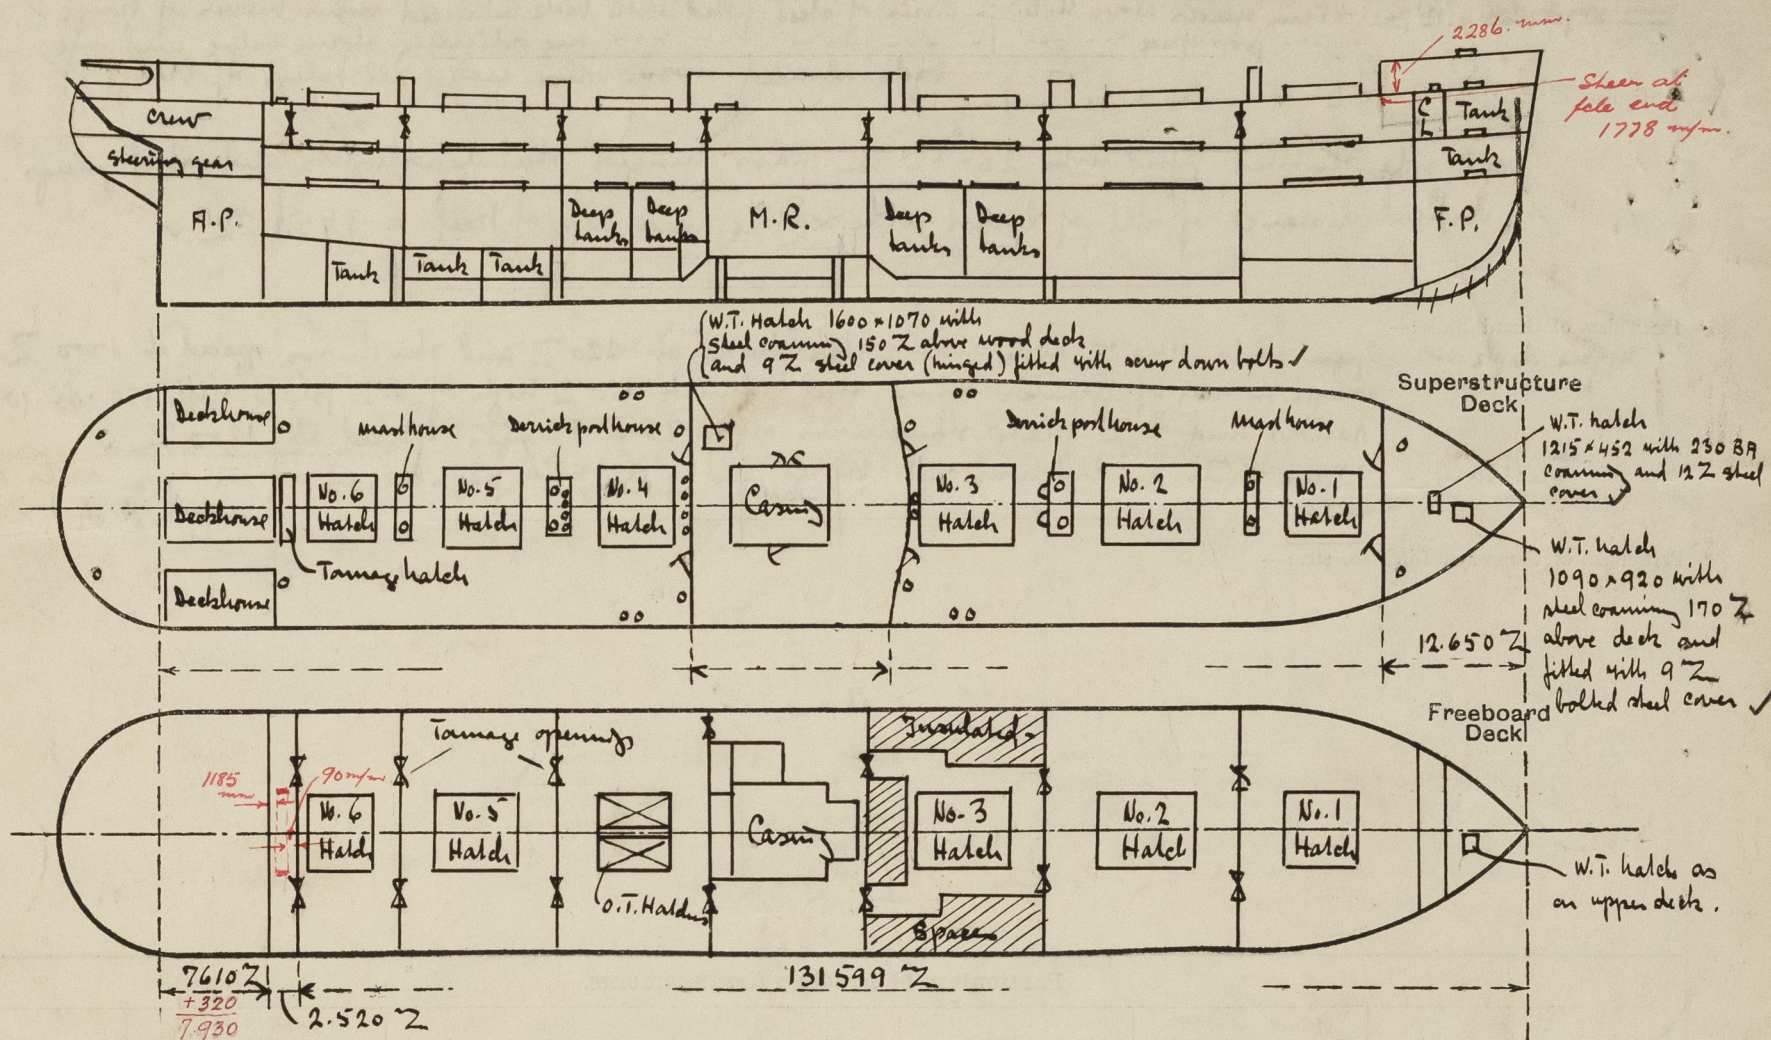 2286. mm.
Sheer at
fcle end
1778 m/m.
Crew
Steering gear
A.P.
Tank
Tank
Tank
Deep
tanks
Deep
tanks
M.R.
Deep
tanks
Deep
tanks
C
L
Tank
Tank
F.P.
W.T. Hatch 1600 x 1070 with
steel coaming 150 Z above wood deck
and 9 Z steel cover (hinged) fitted with screw down bolts ✓
Superstructure
Deck
Deckhouse
Deckhouse
Deckhouse
masthouse
Derrick posthouse
Derrick posthouse
masthouse
No. 6
Hatch
No. 5
Hatch
No. 4
Hatch
Casing
No. 3
Hatch
No. 2
Hatch
No. 1
Hatch
Tonnage hatch
W.T. hatch
1215 x 452 with 230 BA
coaming and 12 Z steel
cover ✓
W.T. hatch
1090 x 920 with
steel coaming 170 Z
above deck and
fitted with 9 Z
bolted steel cover ✓
12.650 Z
Freeboard
Deck
Tonnage openings
Insulated
Space
1185
mm
90 m/m
No. 6
Hatch
No. 5
Hatch
O.T. Hatches
Casing
No. 3
Hatch
No. 2
Hatch
No. 1
Hatch
W.T. hatch as
on upper deck.
7610 Z
+320
7.930
2.520 Z
131599 Z